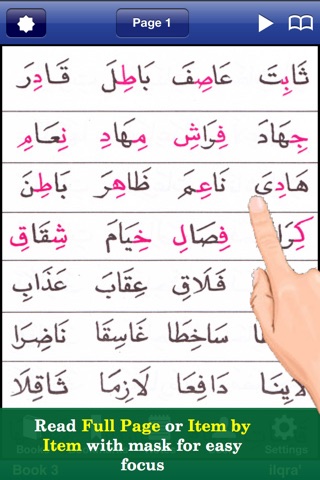 Page 1
قَادِرَ بَاطِلَ عَاصِفَ ثَابِتَ
نِعَامِ مِهَادِ فِرَاشِ جِهَادَ
بَاطِنَ ظَاهِرَ نَاعِمَ هَادِىَ
شِقَاقِ خِيَامَ فِصَالِ
عَذَابِ عِقَابَ فَلَاقِ
نَاضِرَا غَاسِقَا سَاخِطَا
ثَاقِلَا لَازِمَا دَافِعَا
Read Full Page or Item by
Item with mask for easy
focus
Settings
Book 3 iIqra'